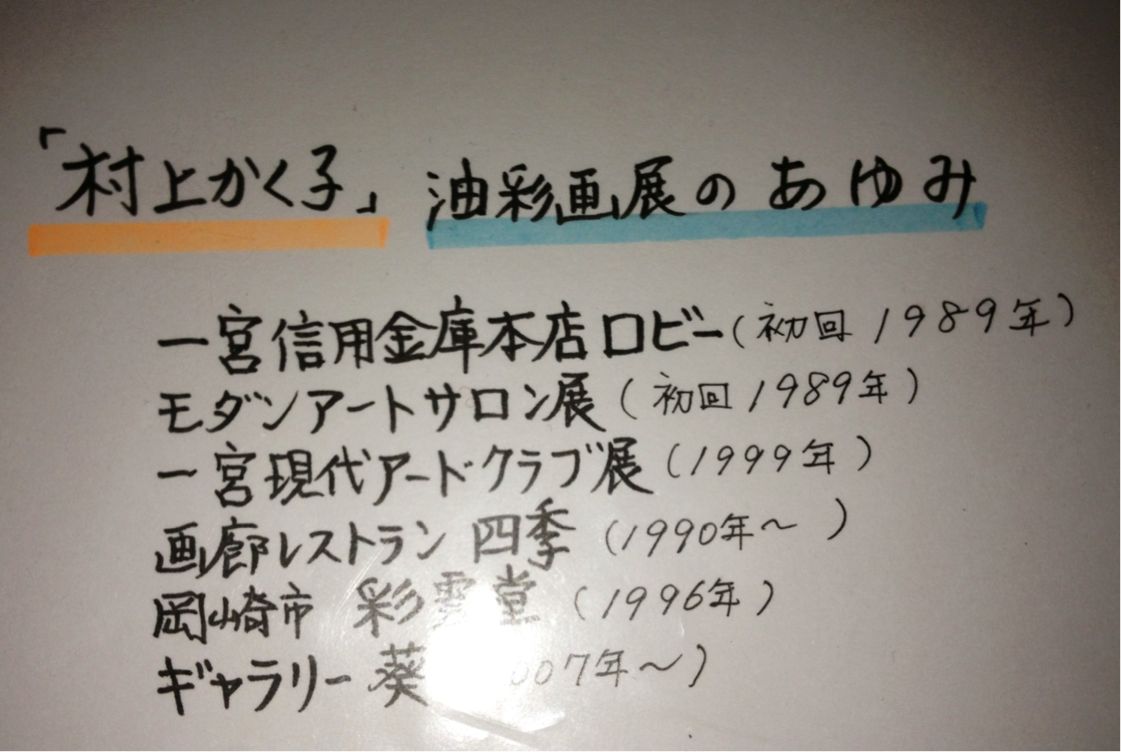 「村上かく子」 油彩画展のあゆみ
一宮信用金庫本店ロビー(初回1989年)
モダンアートサロン展(初回1989年)
一宮現代アードクラブ展(1999年)
画廊レストラン 四季(1990年～ )
岡崎市 彩雲堂(1996年)
ギャラリー 葵 007年～)